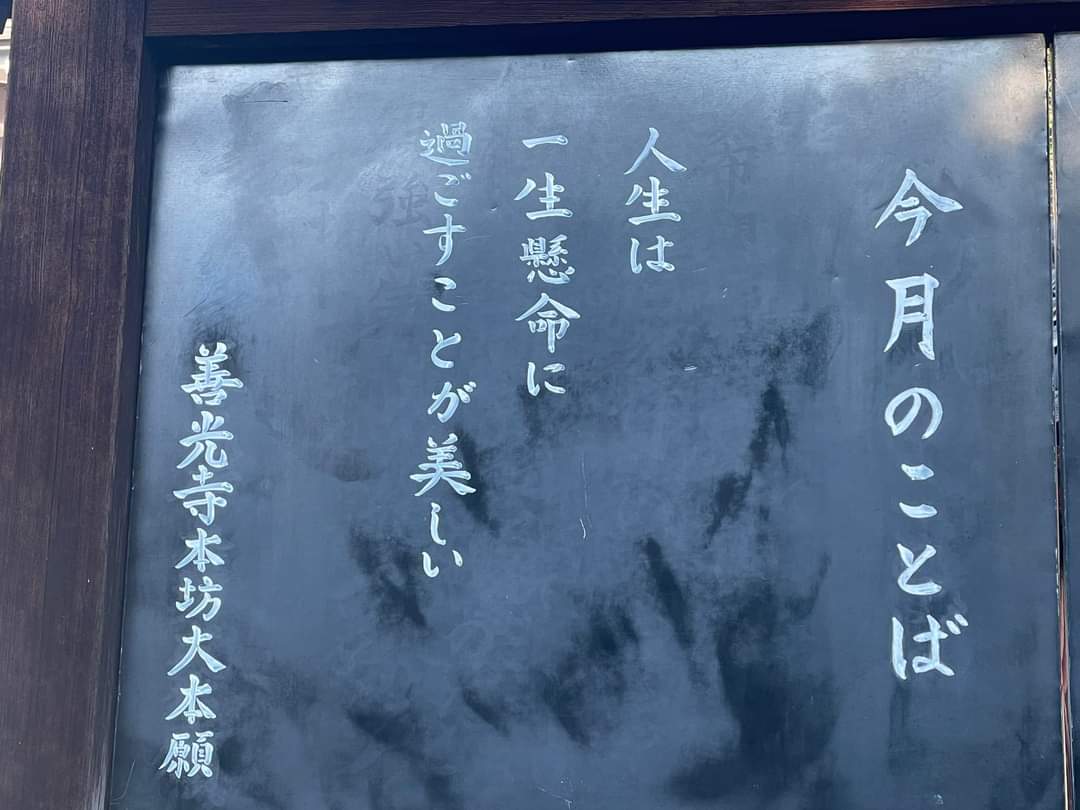 今月のことば
人生は
一生懸命に
過ごすことが美しい
善光寺本坊大本願